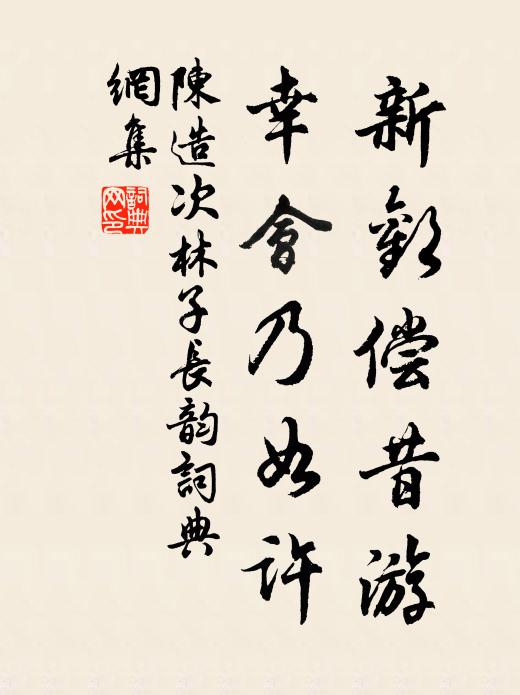 新歡偿昔游
幸會乃如許
陳造次林子長韵詞典
網集
詞典
网印